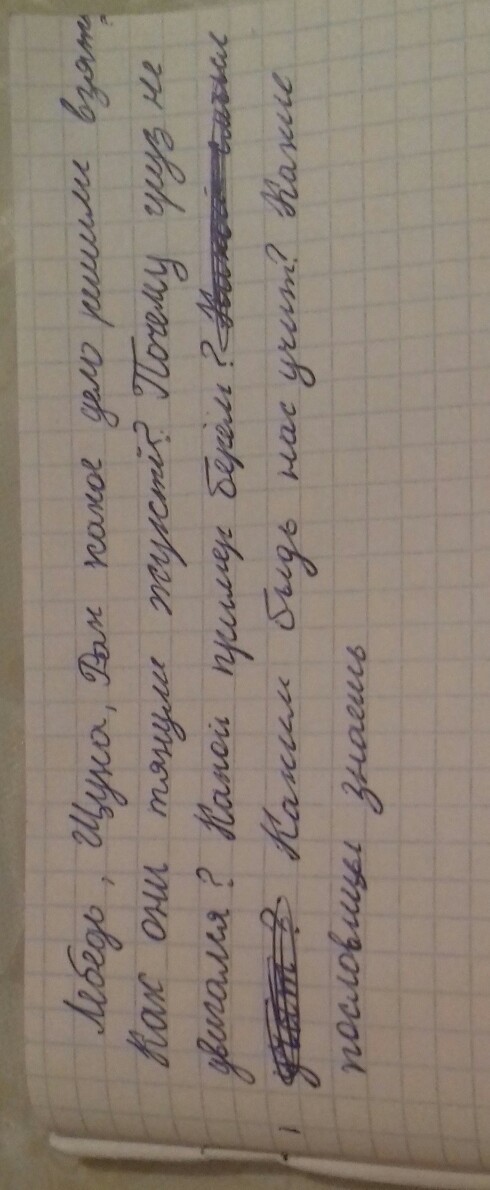 Лебедь, Щука, Рак какое дело решили взять?
Как они тянули жуктё? Почему груз не
двигался? Какой пример берём?
Каким будь нас учит? Какие
пословицы знаешь